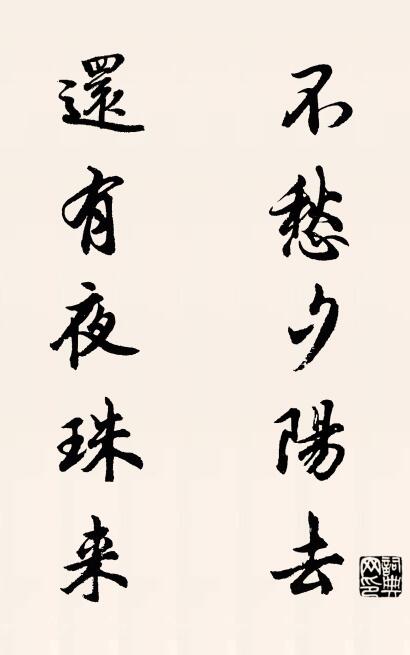 不愁夕陽去
還有夜珠来
詞典網印